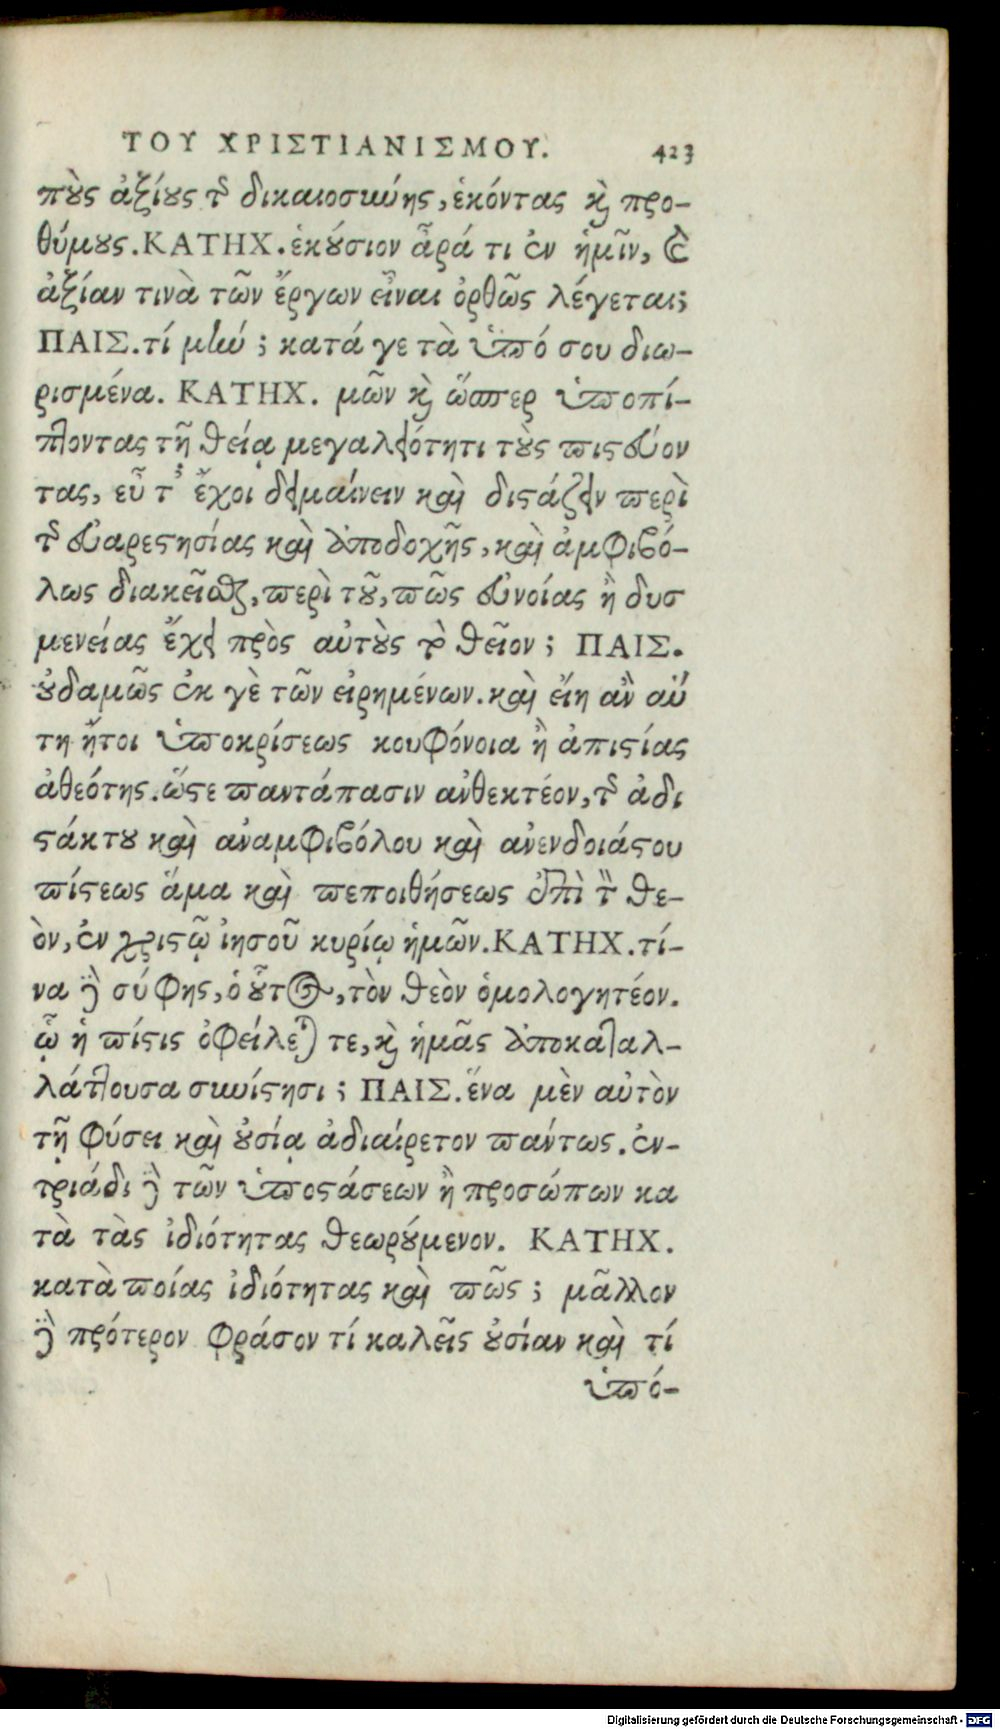 ΤΟΥ ΧΡΙΣΤΙΑΝΙΣΜΟΥ. 423
πȣ̀ς ἀξίȣς τ῀ δικαιοσύνης, ἑκόντας ϗ̀ προ-
θύμȣς. ΚΑΤΗΧ. ἑκȣ́σιον ἆρά τι ἐν ἡμῖν, ϗ̀
ἀξίαν τινὰ τῶν ἔργων εἶναι ὀρθῶς λέγεται;
ΠΑΙΣ. τί μὴν; κατά γε τὰ ὑπό σου διω-
ρισμένα. ΚΑΤΗΧ. μῶν ϗ̀ ὥσπερ ὑποπί-
πτοντας τῇ θείᾳ μεγαλειότητι τȣ̀ς πιστεύον
τας, εὖ τ' ἔχοι δειμαίνειν καὶ διστάζειν περὶ
τ῀ εὐαρεστησίας καὶ ἀποδοχῆς, καὶ ἀμφιβό-
λως διακεῖσθαι, περὶ τȣ͂, πῶς εὐνοίας ἢ δυσ
μενείας ἔχει πρὸς αὐτȣ̀ς τὸ θεῖον; ΠΑΙΣ.
ȣ̓δαμῶς ἐκ γὲ τῶν εἰρημένων. καὶ εἴη ἂν αὕ
τη ἤτοι ὑποκρίσεως κουφόνοια ἢ ἀπιστίας
ἀθεότης. ὥστε παντάπασιν ἀνθεκτέον, τ῀ ἀδι
στάκτȣ καὶ ἀναμφιβόλου καὶ ἀνενδοιάστου
πίστεως ἅμα καὶ πεποιθήσεως ἐπὶ τ̀ θε-
ὸν, ἐν χριστῷ ἰησοῦ κυρίῳ ἡμῶν. ΚΑΤΗΧ. τί-
να δὲ σύ φῃς, ὁ ȣ̃τος, τὸν θεὸν ὁμολογητέον.
ᾧ ἡ πίστις ὀφείλεταί τε, ϗ̀ ἡμᾶς ἀποκαταλ-
λάττουσα συνίστησι; ΠΑΙΣ. ἕνα μὲν αὐτὸν
τῇ φύσει καὶ ȣ̓σίᾳ ἀδιαίρετον πάντως. ἐν-
τριάδι δὲ τῶν ὑποστάσεων ἢ προσώπων κα
τὰ τὰς ἰδιότητας θεωρȣ́μενον. ΚΑΤΗΧ.
κατὰ ποίας ἰδιότητας καὶ πῶς; μᾶλλον
δὲ πρότερον φράσον τί καλεῖς ȣ̓σίαν καὶ τί
ὑπό-
Digitalisierung gefördert durch die Deutsche Forschungsgemeinschaft - DFG